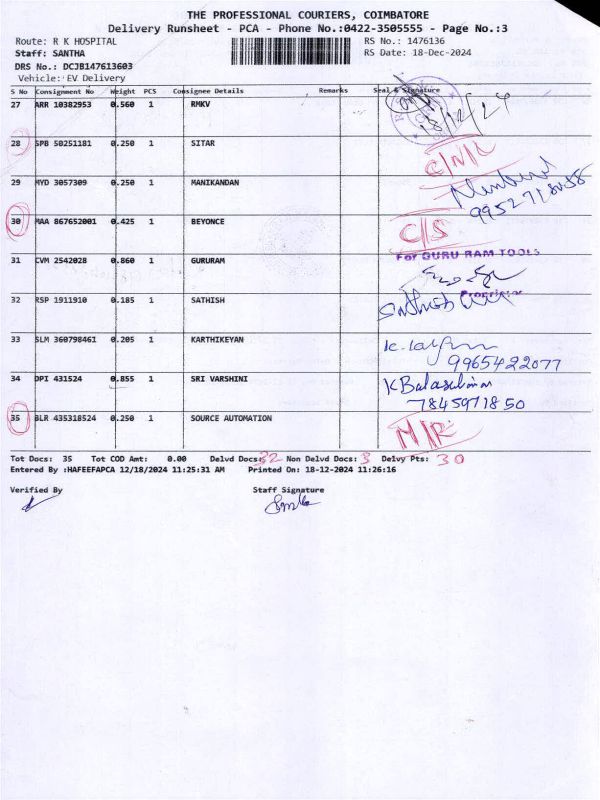 THE PROFESSIONAL COURIERS, COIMBATORE
Delivery Runsheet - PCA - Phone No.:0422-3505555 - Page No.:3
Route: R K HOSPITAL RS No.: 1476136
Staff: SANTHA RS Date: 18-Dec-2024
DRS No.: DCJB147613603
Vehicle: EV Delivery
S No Consignment No Weight PCS Consignee Details Remarks Seal & Signature
27 ARR 10382953 0.560 1 RMKV
18/12/24
28 SPB 50251181 0.250 1 SITAR
29 MYD 3057309 0.250 1 MANIKANDAN
30 MAA 867652001 0.425 1 BEYONCE C/S
31 CVM 2542028 0.860 1 GURURAM For GURU RAM TOOLS
Proprietor
32 RSP 1911910 0.185 1 SATHISH Sathish
33 SLM 360798461 0.205 1 KARTHIKEYAN
9965422077
34 DPI 431524 0.855 1 SRI VARSHINI
7845971850
35 BLR 435318524 0.250 1 SOURCE AUTOMATION N/R
Tot Docs: 35 Tot COD Amt: 0.00 Delvd Docs: 32 Non Delvd Docs: 3 Delvy Pts: 30
Entered By :HAFEEFAPCA 12/18/2024 11:25:31 AM Printed On: 18-12-2024 11:26:16
Verified By Staff Signature